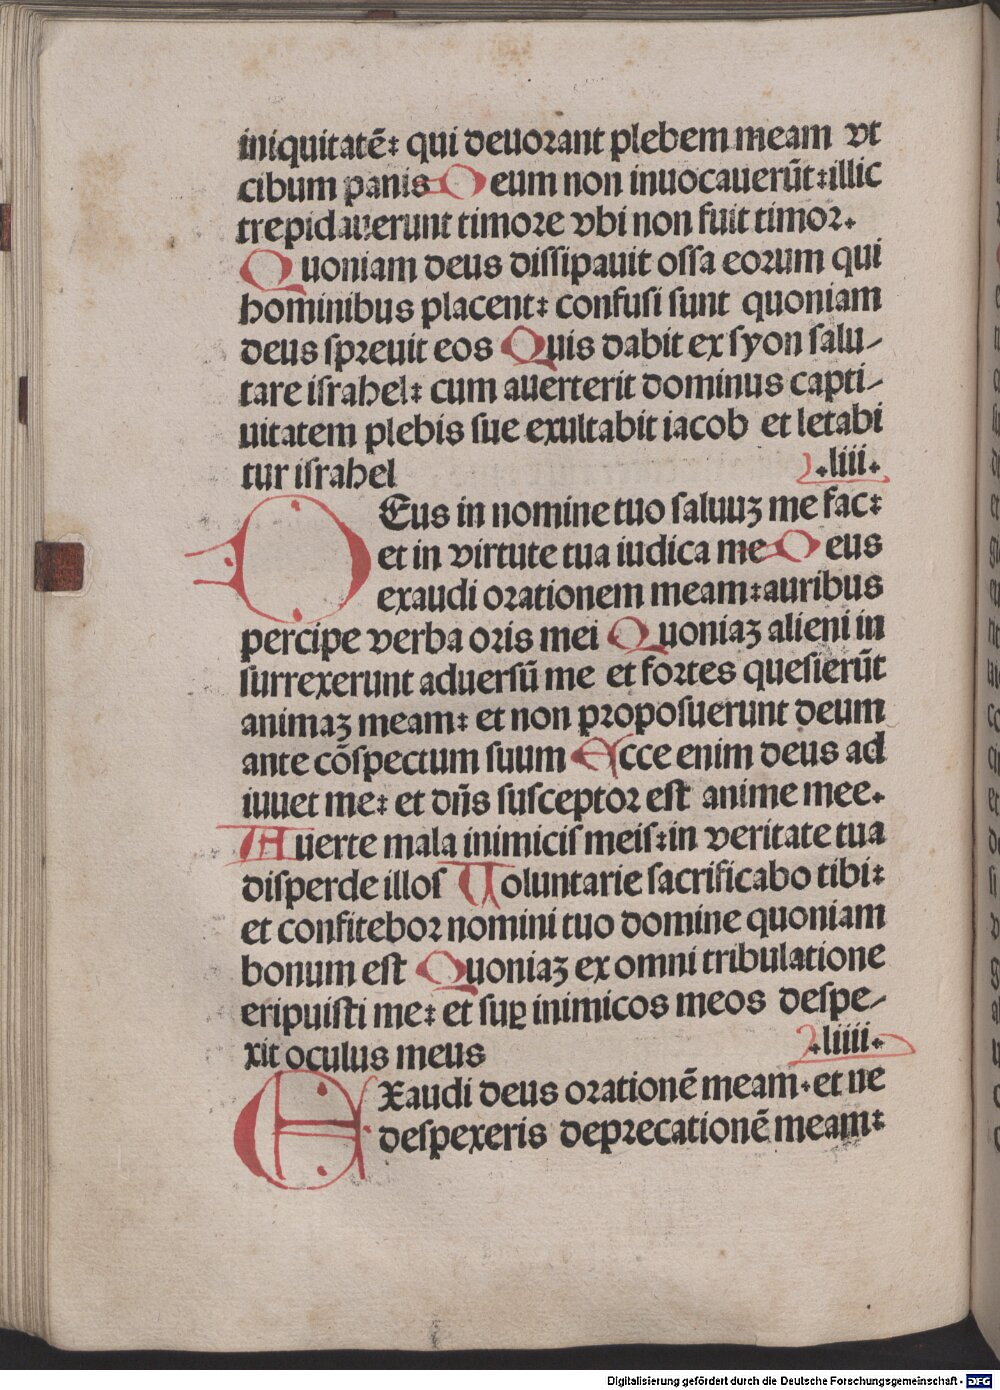 iniquitatē: qui deuorant plebem meam vt
cibum panis Deum non inuocauerūt: illic
trepidauerunt timore vbi non fuit timor.
Quoniam deus dissipauit ossa eorum qui
hominibus placent: confusi sunt quoniam
deus spreuit eos Quis dabit ex syon salu-
tare israhel: cum auerterit dominus capti-
uitatem plebis sue exultabit iacob et letabi
tur israhel .liii.
DEus in nomine tuo saluuꝫ me fac:
et in virtute tua iudica me Deus
exaudi orationem meam: auribus
percipe verba oris mei Quoniaꝫ alieni in
surrexerunt aduersū me et fortes quesierūt
animaꝫ meam: et non proposuerunt deum
ante cōspectum suum Ecce enim deus ad
iuuet me: et dn̄s susceptor est anime mee.
Auerte mala inimicis meis: in veritate tua
disperde illos Uoluntarie sacrificabo tibi:
et confitebor nomini tuo domine quoniam
bonum est Quoniaꝫ ex omni tribulatione
eripuisti me: et suꝑ inimicos meos despe-
xit oculus meus .liiii.
EXaudi deus orationē meam. et ne
despexeris deprecationē meam:
Digitalisierung gefördert durch die Deutsche Forschungsgemeinschaft - DFG